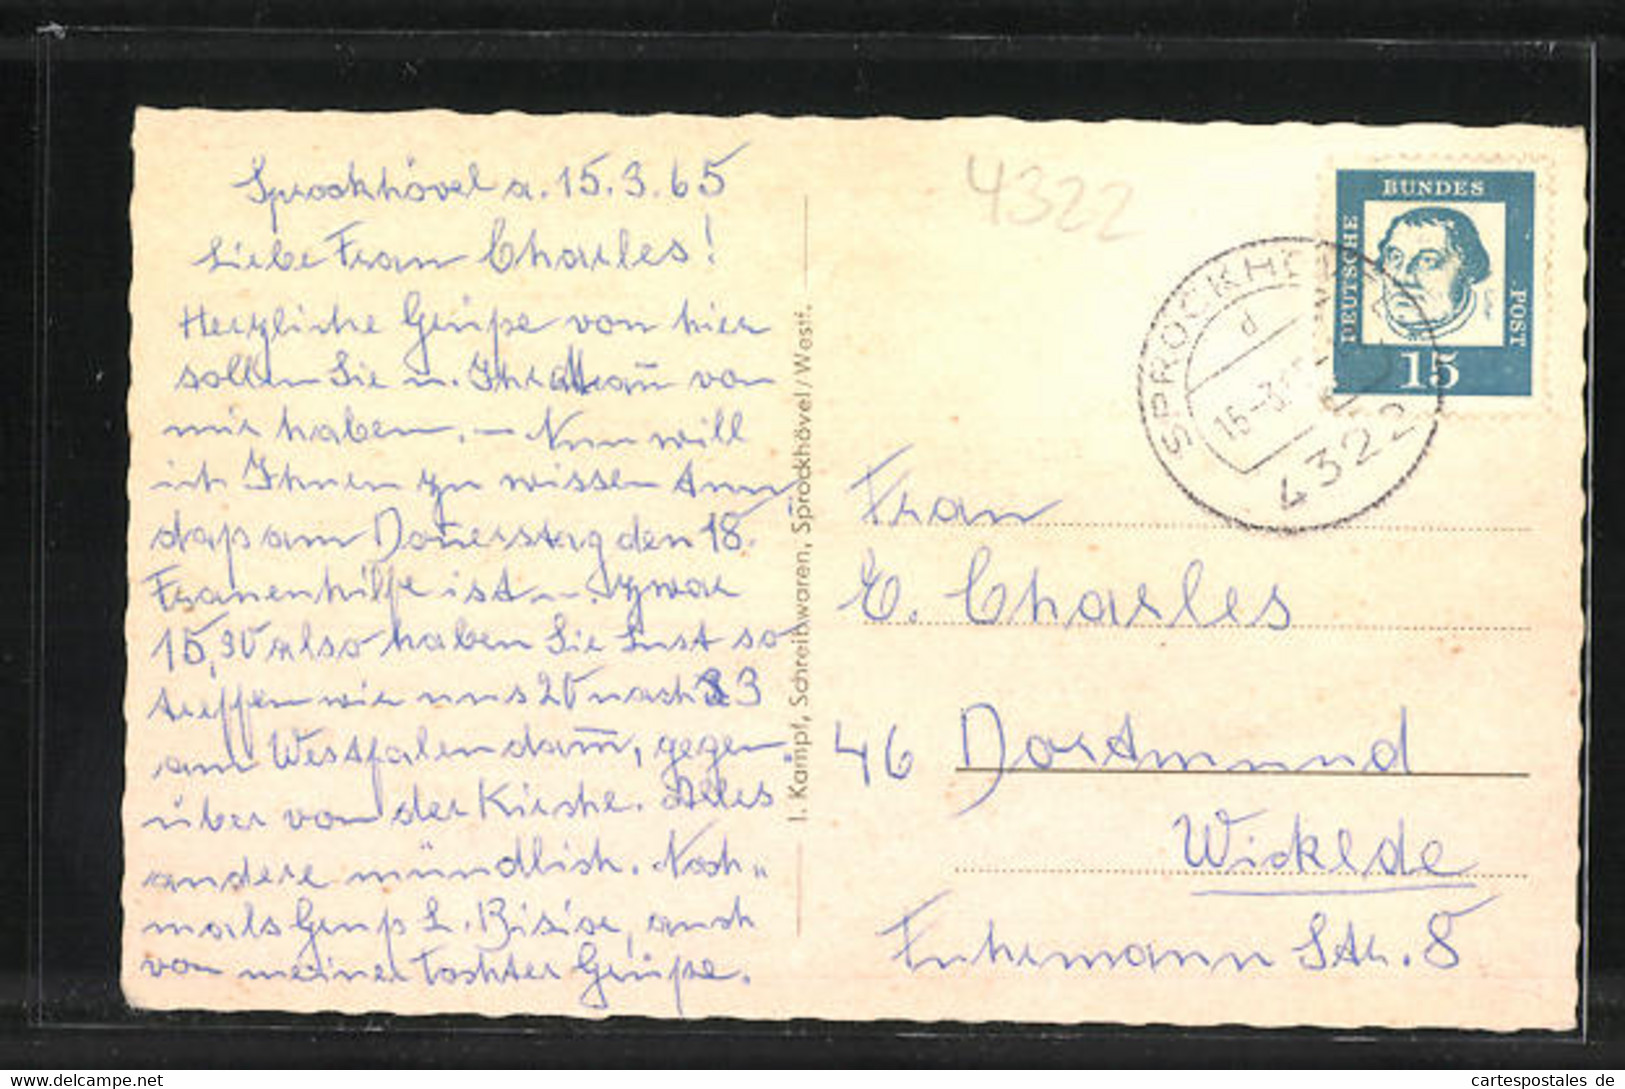 Sprockhövel a. 15.3.65
Liebe Frau Charles!
Herzliche Grüße von hier
sollen Sie u. Ihr Mann von
mir haben. – Nun will
ich Ihnen zu wissen tun
daß am Donnerstag den 18.
Frauenhilfe ist u. zwar
15,30 also haben Sie Lust so
treffen wir uns 20 nach 3
am Westfalendamm, gegen
über von der Kirche. Alles
andere mündlich. Noch„
mals Gruß L. auch
von meiner Tochter Grüße.
I. Kampf, Schreibwaren, Sprockhövel/Westf.
4322
DEUTSCHE BUNDES POST
15
SPROCKHÖVEL
d
15.-3.65
4322
Frau
E. Charles
46 Dortmund
Wickede
Fuhrmann Str. 8
cartespostales de